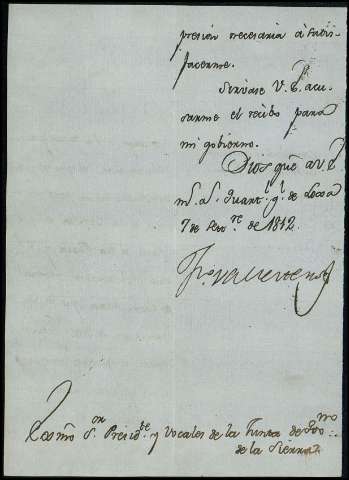 presion necesaria á satis-
facerme.
Sirvase V.E. acu-
sarme el recibo para
mi gobierno.
Dios gue. a V.E.
m.s a.s Quart.l g.l de
7 de Sbre. de 1812.
Exsmo. S.on Presid.te y Vocales de la Junta de
de la Sierra